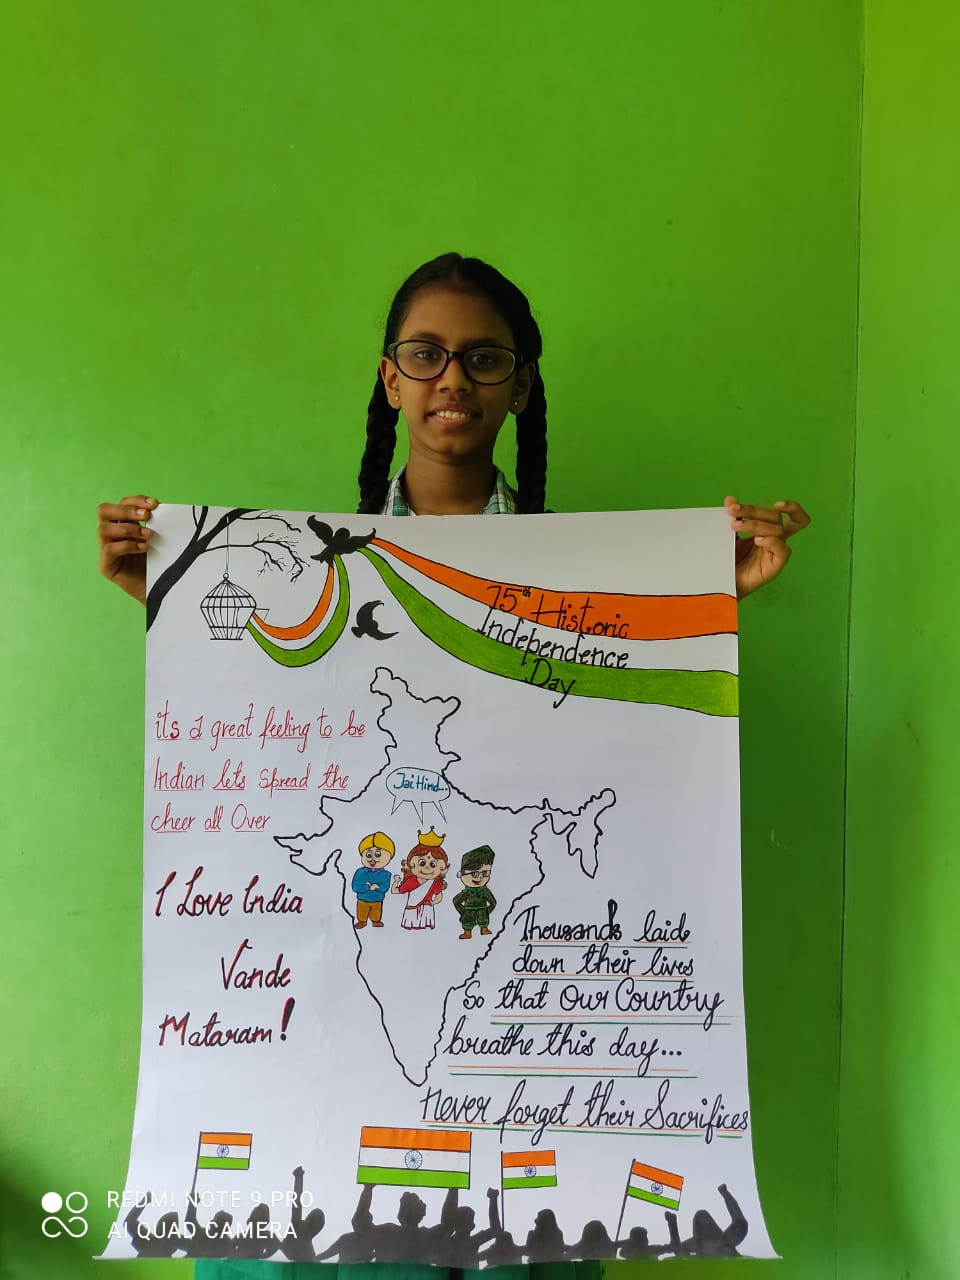 75th Historic
Independence
Day
its a great feeling to be
Indian lets spread the
cheer all Over
Jai Hind...
I Love India
Vande
Mataram!
Thousands laid
down their lives
So that Our Country
breathe this day...
never forget their Sacrifices
REDMI NOTE 9 PRO
AI QUAD CAMERA